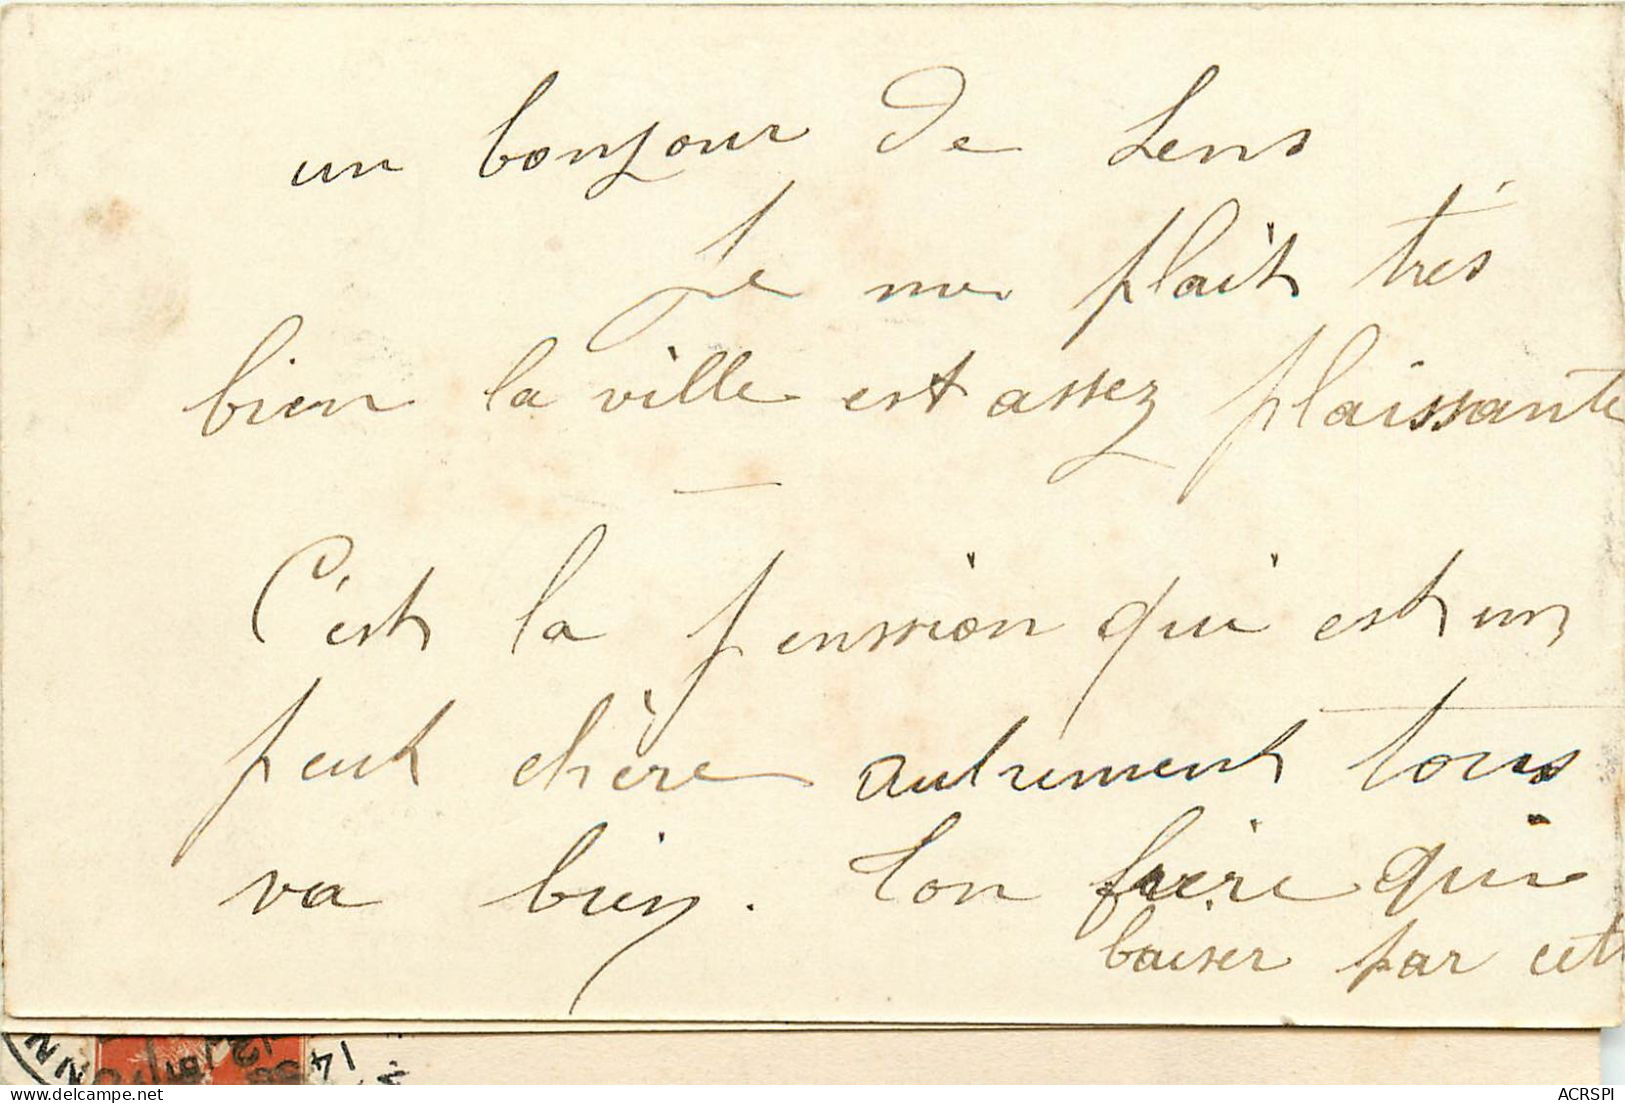 un bonjour de Lens
Je me plait très
bien la ville est assez plaissante
C'est la penssion qui est un
peut chère autrement tous
va bien. Ton frère qui
baiser par cet
14
ACRSPI